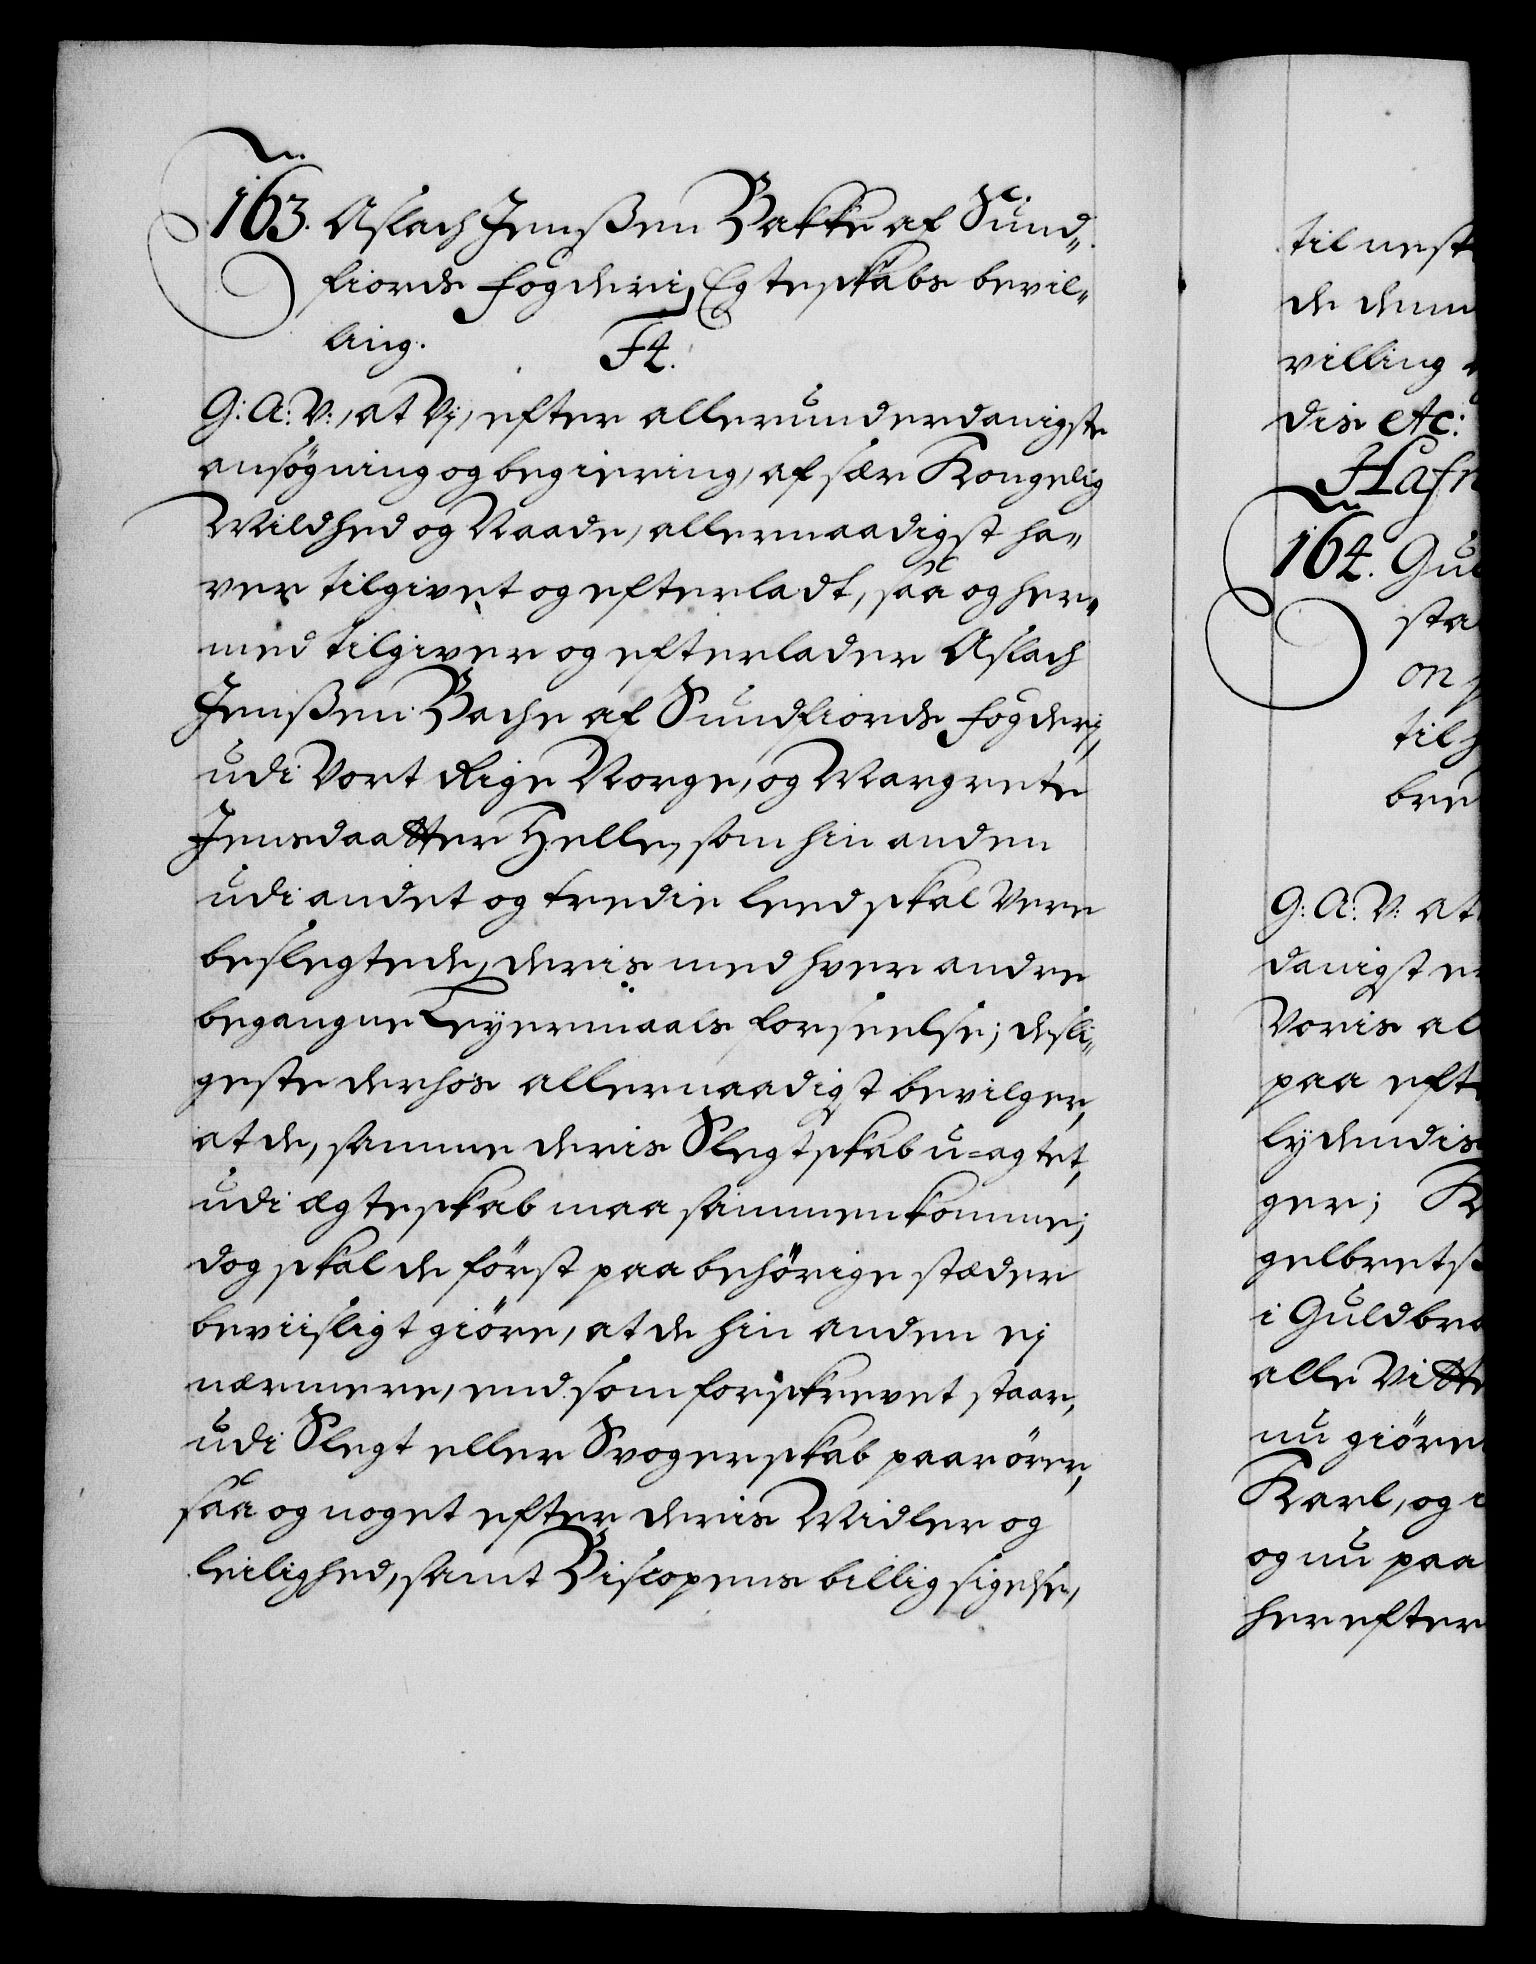 163. Aslach Jenssen Bakke af Sund„
fiords Fogderi, Egteskabs bevil„
ling. F4.
G: A: V:, at Vj, efter allerunderdanigste
ansögning og begiering, af sær Kongelig
Mildhed og Naade, allernaadigst ha„
ver tilgivet og efterladt, saa og her„
med tilgiver og efterlader Aslach
Jenssen Bache af Sundfiords Fogderj,
udi Vort Rige Norge, og Margrete
Jensdaatter Helle, som hin anden
udi andet og tredie leed skal Vere
beslegtede, deris med hver andre
begangne Leyermaals forseelse; desli„
geste derhos allernaadigst bevilger,
at de, samme deris Slegtskab u=agtet,
udi ægteskab maa sammenkomme;
dog skal de först paa behörige stæder
beviisligt giöre, at de hin anden ej
nærmere, end som forskrevet staar,
udi Slegt eller Svogerskab paarörer,
saa og noget efter deris Midler og
leilighed, samt Biscopens billig sigelse,
til nest
de dem
villing
dis etc:
Hafn
164. Gul
sta
on
til
bre
G: A: V: at
danigst er
Voris al
paa eft
lydendis
ger; K
gelbrets
i Guldbra
alle Vitte
nu giöre
Karl, og
og nu paa
herefter